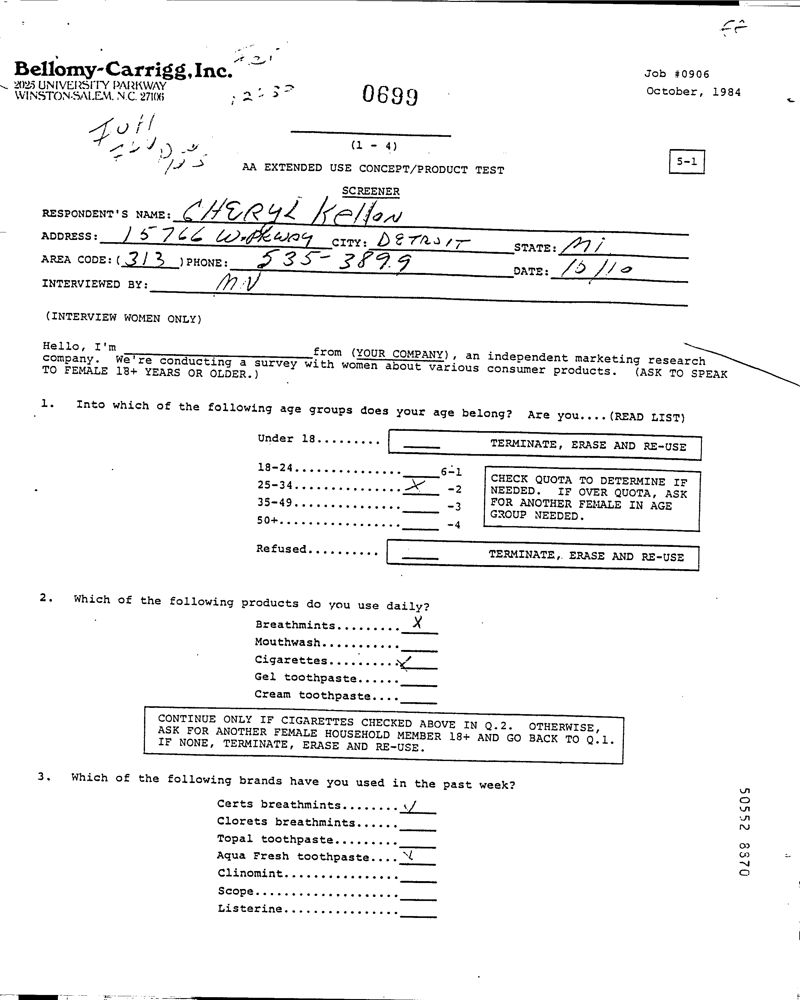 Bellomy-Carrigg, Inc.
2025 UNIVERSITY PARKWAY
WINSTON-SALEM, N.C. 27106
0699
Job #0906
October, 1984
(1 - 4)
AA EXTENDED USE CONCEPT/PRODUCT TEST
5-1
SCREENER
RESPONDENT'S NAME: CHERYL Kelton
ADDRESS: 15766 W. Pkway CITY: DETROIT STATE: Mi
AREA CODE: (313) PHONE: 535-3899 DATE: 10/10
INTERVIEWED BY: MV
(INTERVIEW WOMEN ONLY)
Hello, I'm ____ from (YOUR COMPANY), an independent marketing research
company. We're conducting a survey with women about various consumer products. (ASK TO SPEAK
TO FEMALE 18+ YEARS OR OLDER.)
1. Into which of the following age groups does your age belong? Are you....(READ LIST)
Under 18......... ____ TERMINATE, ERASE AND RE-USE
18-24............... ____ 6-1
25-34............... X -2
35-49............... ____ -3
50+................. ____ -4
CHECK QUOTA TO DETERMINE IF
NEEDED. IF OVER QUOTA, ASK
FOR ANOTHER FEMALE IN AGE
GROUP NEEDED.
Refused.......... ____ TERMINATE, ERASE AND RE-USE
2. Which of the following products do you use daily?
Breathmints......... X
Mouthwash........... ____
Cigarettes......... ✓
Gel toothpaste...... ____
Cream toothpaste.... ____
CONTINUE ONLY IF CIGARETTES CHECKED ABOVE IN Q.2. OTHERWISE,
ASK FOR ANOTHER FEMALE HOUSEHOLD MEMBER 18+ AND GO BACK TO Q.1.
IF NONE, TERMINATE, ERASE AND RE-USE.
3. Which of the following brands have you used in the past week?
Certs breathmints........ ✓
Clorets breathmints...... ____
Topal toothpaste......... ____
Aqua Fresh toothpaste.... ✓
Clinomint................ ____
Scope.................... ____
Listerine................ ____
50552 8370